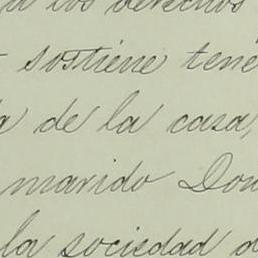 a los derechos
sostiene tene
a de la casa,
marido Don
la sociedad d